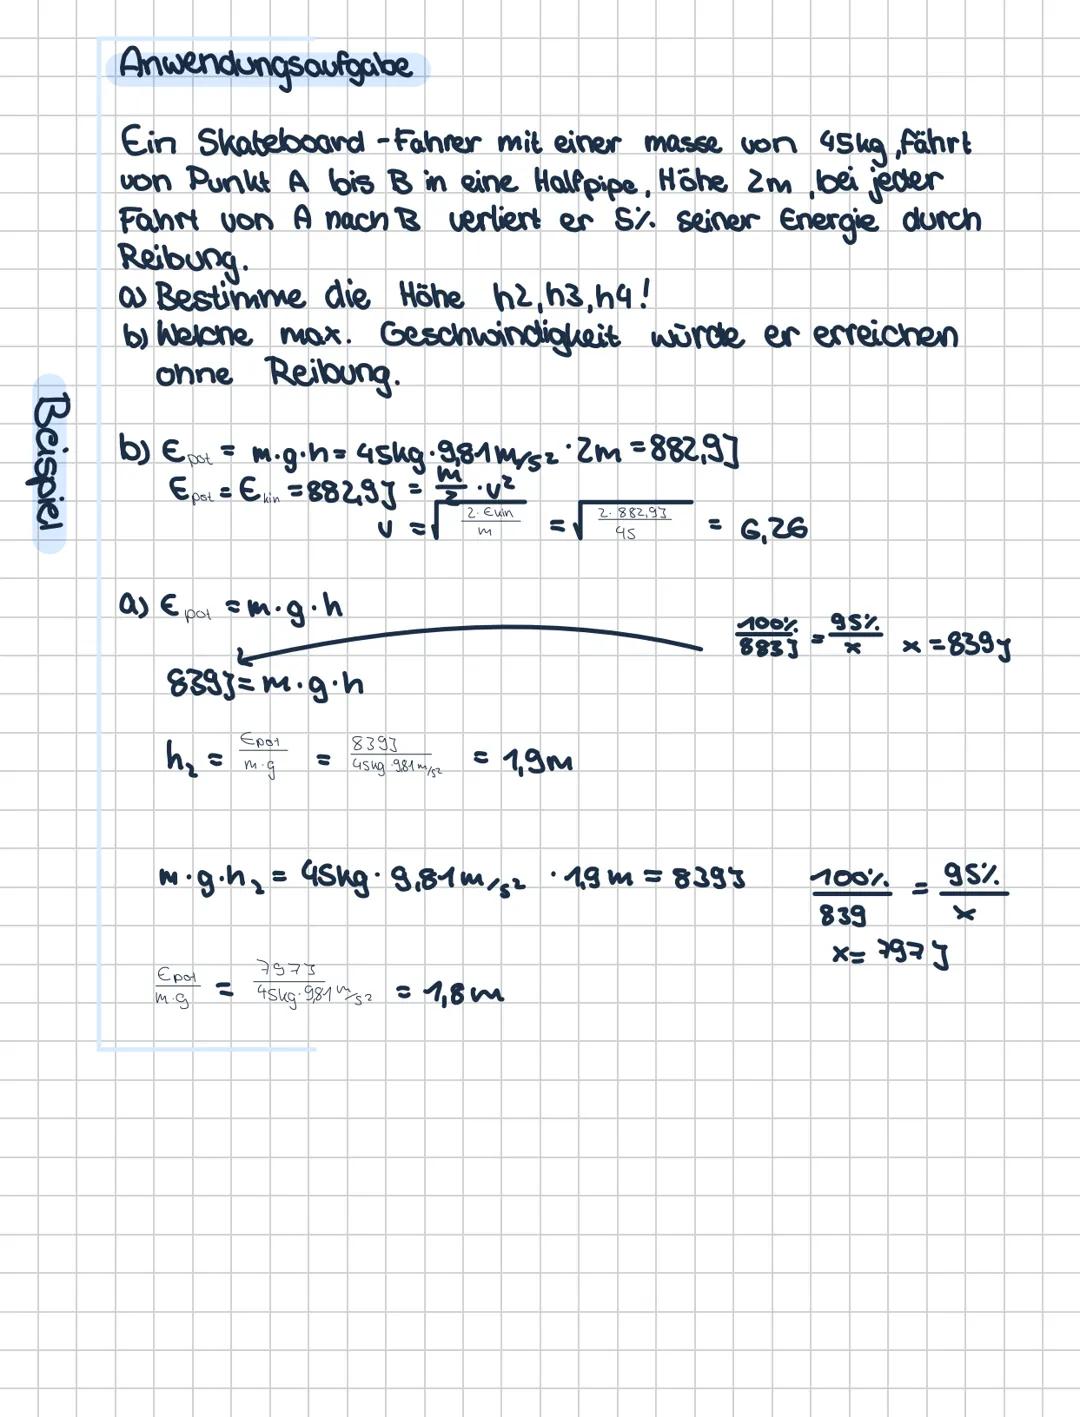 Anwendungsaufgabe
Ein Skateboard-Fahrer mit einer masse von 45kg, fährt
von Punkt A bis B in eine Halfpipe, Höhe 2m, bei jeder
Fahrt von A nach B verliert er 5% seiner Energie durch
Reibung.
a) Bestimme die Höhe h2, h3, h4!
b) Welche max. Geschwindigkeit würde er erreichen
ohne Reibung.
Beispiel
b) Epot = m·g·h = 45kg · 9,81 m/s² · 2m = 882,9J
Epot = Ekin = 882,9J = m/2 · v²
v = √(2·Ekin / m) = √(2·882,9J / 45) = 6,26
a) Epot = m·g·h
100% / 883J = 95% / x x = 839J
839J = m·g·h
h₂ = Epot / m·g = 839J / 45kg·9,81m/s² = 1,9m
m·g·h₂ = 45kg · 9,81 m/s² · 1,9m = 839J
100% / 839 = 95% / x
x = 797J
Epot / m·g = 797J / 45kg·9,81 m/s² = 1,8m